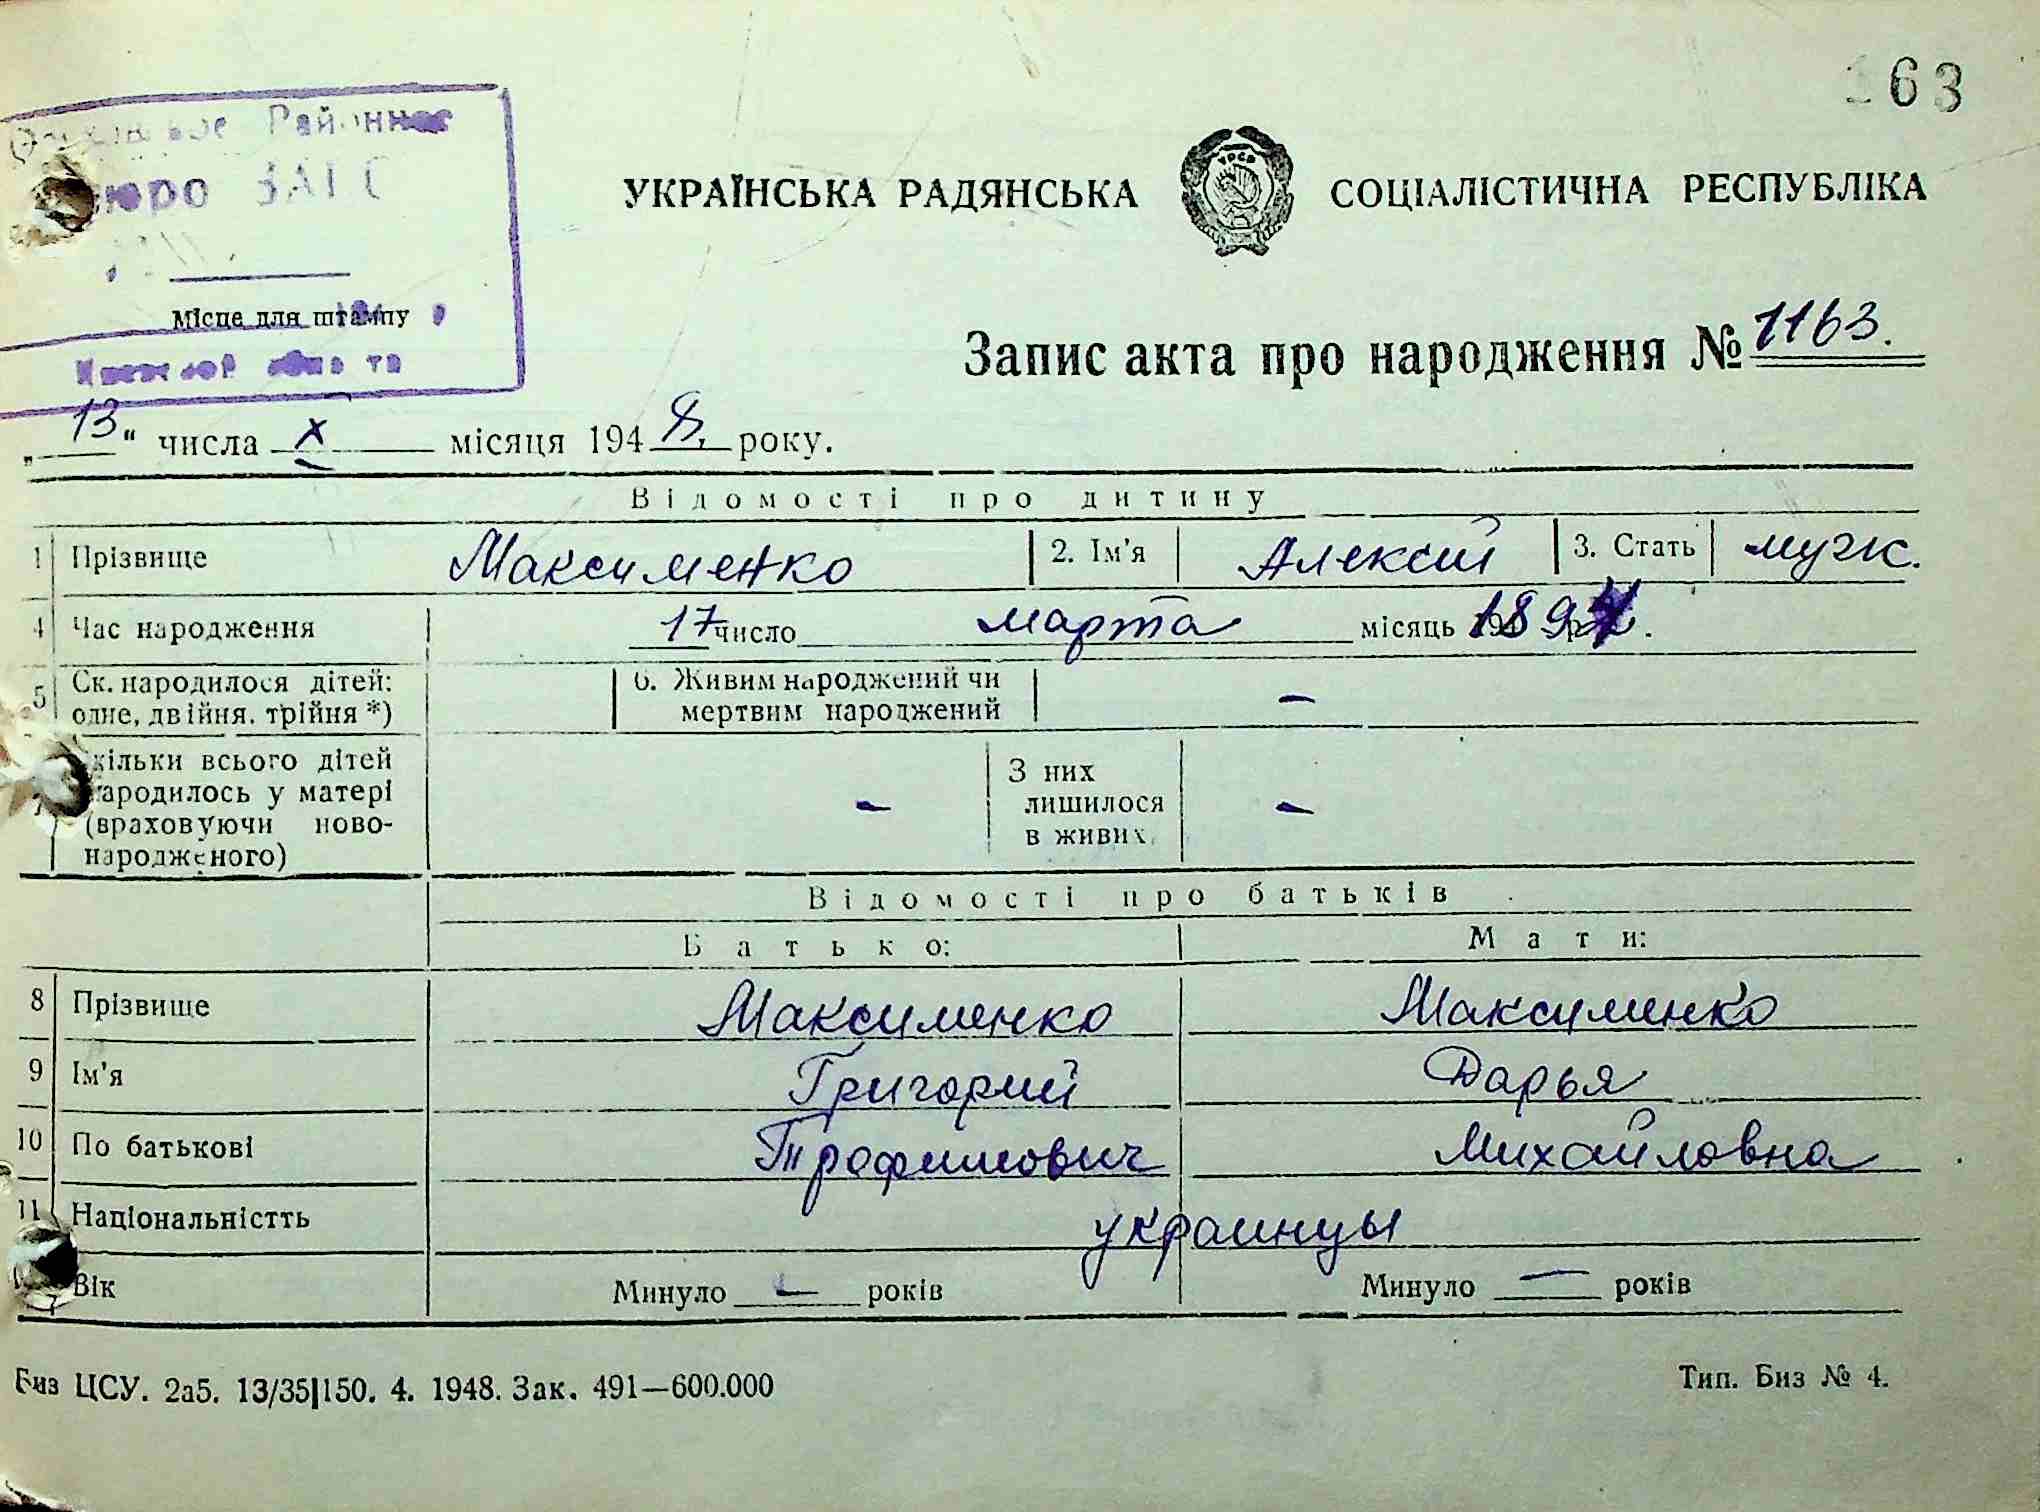 163
Районное
бюро ЗАГС
УКРАЇНСЬКА РАДЯНСЬКА СОЦІАЛІСТИЧНА РЕСПУБЛІКА
УРСР
Місце для штампу
Запис акта про народження № 1163.
„13“ числа X місяця 1948 року.
Відомості про дитину
1 Прізвище Максименко 2. Ім'я Алексей 3. Стать мужс.
4 Час народження 17 число марта місяць 1894 р.
5 Ск. народилося дітей: 6. Живим народжений чи –
одне, двійня. трійня *) мертвим народжений
кільки всього дітей З них
народилось у матері – лишилося –
(враховуючи ново- в живих
народженого)
Відомості про батьків
Батько: Мати:
8 Прізвище Максименко Максименко
9 Ім'я Григорий Дарья
10 По батькові Трофимович Михайловна
11 Національністть украинцы
Вік Минуло – років Минуло – років
Биз ЦСУ. 2а5. 13/35|150. 4. 1948. Зак. 491—600.000 Тип. Биз № 4.